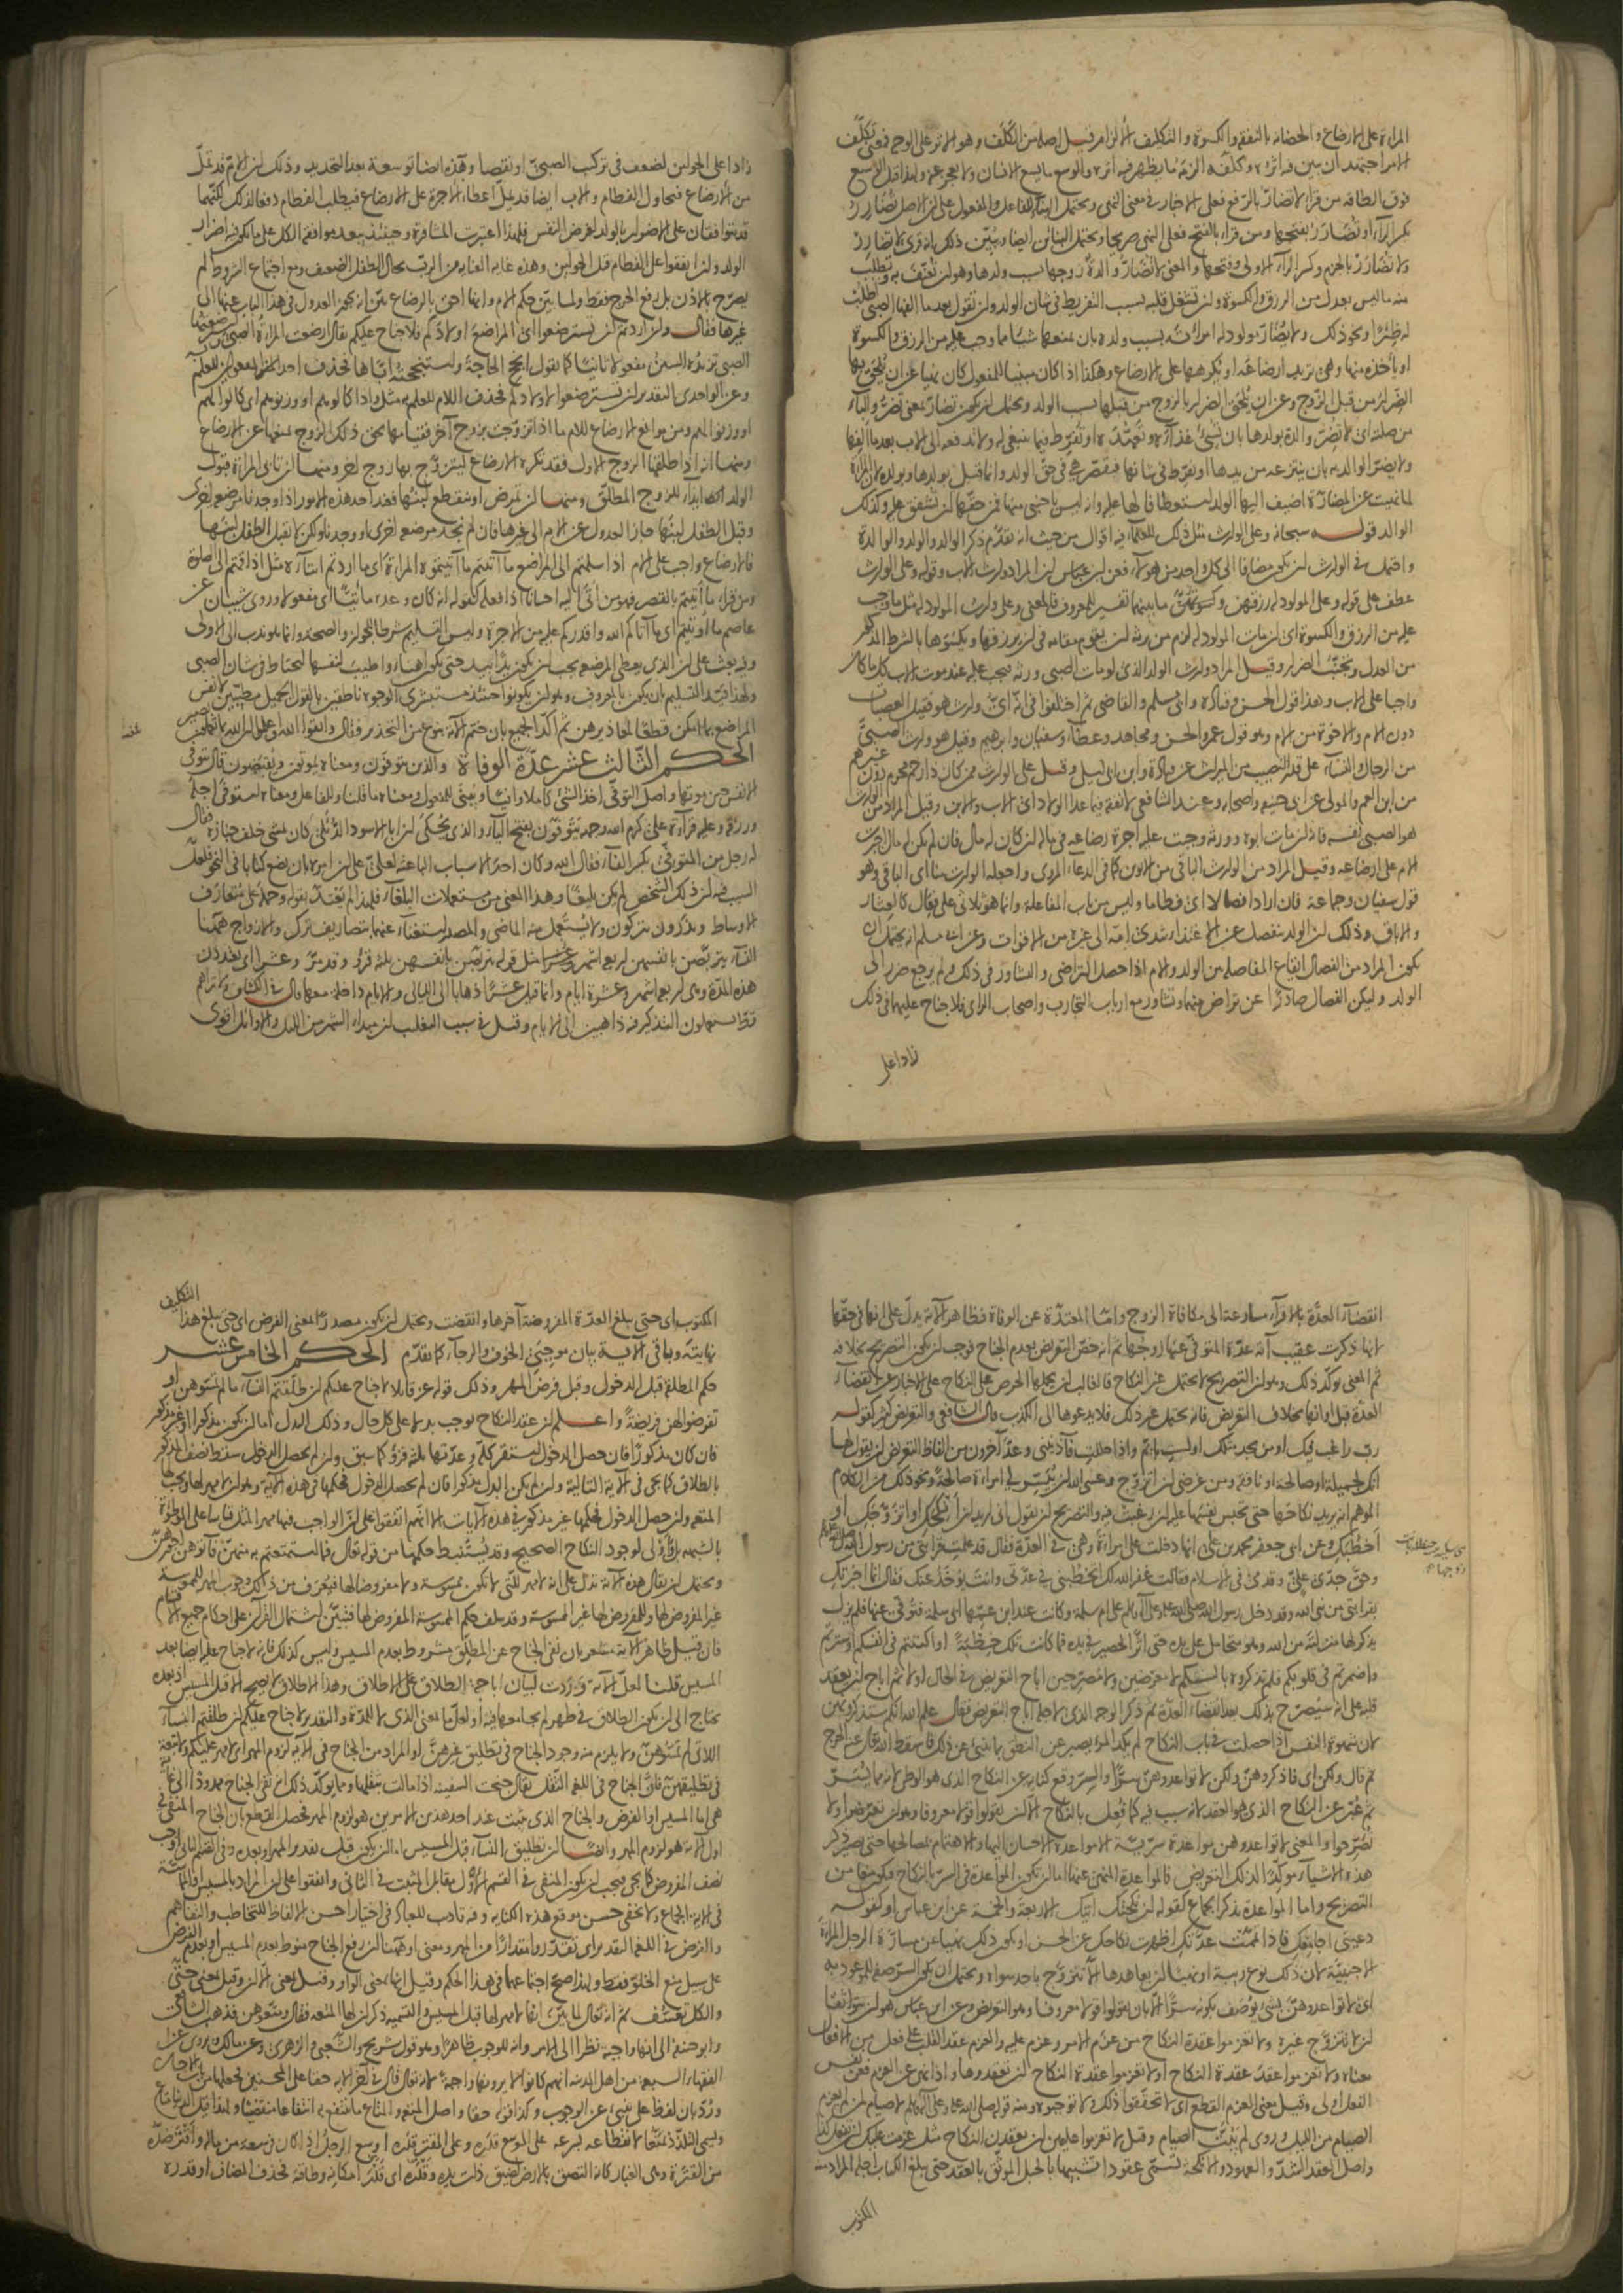 المراة على الارضاع والحضانة بالنفقة والكسوة والتكليف الالزام قيل اصله من الكلف وهو الاثر على الوجه فمعنى تكلّف
الامر اجتهد ان يبين فيه اثره وكلّفه الزمه ما يظهر فيه اثره والوسع ما يسع الانسان ولا يعجز عنه ولهذا قيل الوسع
فوق الطاقة من قراء لا تضارّ بالرفع فعلى الاخبار في معنى النهي ويحتمل البناء للفاعل والمفعول على ان الاصل تضارِر
بكسر الراء او تضارَر بفتحها ومن قراء بالفتح فعلى النهي صريحا ويحتمل البنائين ايضا ويبيّن ذلك انه قرئ لا تضارِر
ولا تضارَر بالجزم وكسر الراء الاولى وفتحها والمعنى لا تضارّ والدة زوجها بسبب ولدها وهو ان تعنّف به وتطلب
منه ما ليس بعدل من الرزق والكسوة وان تشغل قلبه بسبب التفريط في شان الولد وان تقول بعد ما الفها الصبي اطلب
له ظئرا ونحو ذلك ولا يضارّ مولود له امراته بسبب ولده بان يمنعها شيئا مما وجب عليه من الرزق والكسوة
او ياخذه منها وهي تريد ارضاعه او يكرهها على الارضاع وهكذا اذا كان مبنيا للمفعول كان نهيا عن ان يلحق بها
الضرار من قبل الزوج وعن ان يلحق الضرار بالزوج من قبلها بسبب الولد ويحتمل ان يكون تضارّ بمعنى تضرّ والباء
من صلته اي لا تضرّ والدة بولدها بان تسئ غذاءه وتعهّده او تفرّط فيما ينبغي له ولا تدفعه الى الاب بعد ما الفها
ولا يضرّ الوالد به بان ينتزعه من يدها او يفرّط في شانها فتقصّر هي في حقّ الولد وانما قيل بولدها وبولده لان المراة
لما نهيت عن المضارّة اضيف اليها الولد استعطافا لها عليه وانه ليس باجنبي منها فمن حقّها ان تشفق عليه وكذلك
الوالد قوله سبحانه وعلى الوارث مثل ذلك للعلماء فيه اقوال من حيث انه تقدّم ذكر الوالد والولد والوالدة
واحتمل في الوارث ان يكون مضافا الى كل واحد من هولاء فعن ابن عباس ان المراد وارث الاب وقوله وعلى الوارث
عطف على قوله وعلى المولود له رزقهن وكسوتهنّ وما بينهما تفسير للمعروف فالمعنى وعلى وارث المولود له مثل ما وجب
عليه من الرزق والكسوة اي ان مات المولود له لزم من يرثه ان يقوم مقامه في ان يرزقها ويكسوها بالشرط المذكور
من العدل وتجنّب الضرار وقيل المراد وارث الولد الذي لو مات الصبي ورثه فيجب عليه عند موت الاب كل ما كان
واجبا على الاب وهذا قول الحسن وقتادة وابي مسلم والقاضي ثم اختلفوا في انه اي وارث هو فقيل العصبات
دون الام والاخوة من الام وهو قول عمر والحسن ومجاهد وعطاء وسفيان وابرهيم وقيل هو وارث الصبيّ
من الرجال والنساء على قدر النصيب من الميراث عن قتادة وابن ابي ليلى وقيل على الوارث ممن كان ذا رحم محرم دون غيرهم
من ابن العم والمولى عن ابي حنيفة واصحابه وعند الشافعي لا نفقة فيما عدا الولاد اي الاب والابن وقيل المراد من الوارث
هو الصبي نفسه فانه ان مات ابوه وورثه وجبت عليه اجرة رضاعه في ماله ان كان له مال فان لم يكن له مال اجبرت
الام على ارضاعه وقيل المراد من الوارث الباقي من الابوين كما في الدعاء المروي واجعله الوارث منا اي الباقي وهو
قول سفيان وجماعة فان ارادا فصالا اي فطاما وليس من باب المفاعلة وانما هو ثلاثي على فعال كالعثار
والاباق وذلك ان الولد ينفصل عن الاغتذاء بثدي امّه الى غيره من الاقوات وعن ابي مسلم انه يحتمل ان
يكون المراد من الفصال ايقاع المفاصلة بين الولد والام اذا حصل التراضي والتشاور في ذلك ولم يرجع ضرر الى
الولد وليكن الفصال صادرا عن تراض منهما وتشاور مع ارباب التجارب واصحاب الراي فلا جناح عليهما في ذلك
زادا على
زادا على الحولين لضعف في تركيب الصبيّ او نقصا وهذه ايضا توسعة بعد التحديد وذلك ان الام قد تملّ
من الارضاع فتحاول الفطام والاب ايضا قد يملّ اعطاء الاجرة على الارضاع فيطلب الفطام دفعا لذلك لكنّهما
قد يتوافقان على الاضرار بالولد لغرض النفس فلهذا اعتبرت المشاورة وحينئذ يبعد موافقة الكل على ما يكون فيه اضرار
الولد وان اتفقوا على الفطام قبل الحولين وهذه غاية العناية من الربّ بحال الطفل الضعيف ومع اجتماع الشروط لم
يصرّح بالاذن بل رفع الحرج فقط ولما بيّن حكم الام وانها احق بالرضاع بيّن انه يجوز العدول في هذا الباب عنها الى
غيرها فقال وان اردتم ان تسترضعوا اي المراضع اولادكم فلا جناح عليكم يقال ارضعت المراة الصبي واسترضعتها
الصبي تزيده السين مفعولا ثانيا كما تقول انجح الحاجة واستنجحته اياها فحذف احد المفعولين للعلم
وعن الواحدي التقدير ان تسترضعوا لاولادكم فحذف اللام للعلم به مثل واذا كالوهم او وزنوهم اي كالوا لهم
او وزنوا لهم ومن موانع الارضاع للام ما اذا تزوّجت بزوج آخر فقيامها بحق ذلك الزوج يمنعها عن الارضاع
ومنها انه اذا طلقها الزوج الاول فقد تكره الارضاع ليتزوّج بها زوج اخر ومنها ان تابى المراة قبول
الولد ايذاء للزوج المطلّق ومنها ان تمرض او ينقطع لبنها فعند احد هذه الامور اذا وجدنا مرضعة اخرى
وقبل الطفل لبنها جاز العدول عن الام الى غيرها فان لم نجد مرضعة اخرى او وجدناها ولكن لا يقبل الطفل لبنها
فالارضاع واجب على الام اذا سلمتم الى المراضع ما آتيتم ما آتيتموه المراة اي ما اردتم ايتاءه مثل اذا قمتم الى الصلوة
ومن قراء ما اتيتم بالقصر فهو من اتى اليه احسانا اذا فعله كقوله انه كان وعده ماتيّا اي مفعولا وروى شيبان عن
عاصم ما أوتيتم اي ما آتاكم الله واقدركم عليه من الاجرة وليس التسليم شرطا للجواز والصحة وانما هو ندب الى الاولى
وفيه بعث على ان الذي يعطى المرضعة يجب ان يكون يدا بيد حتى يكون اهنا واطيب لنفسها لتحتاط في شان الصبي
ولهذا قيّد التسليم بان يكون بالمعروف وهو ان يكونوا حينئذ مستبشري الوجوه ناطقين بالقول الجميل مطيّبين لانفس
المراضع بما امكن قطعا لمعاذيرهن ثم اكّد الجميع بان ختم الآية بنوع من التحذير فقال واتقوا الله واعلموا ان الله بما تعملون بصير
الحكم الثالث عشر عدّة الوفاة والذين يتوفّون ومعناه يموتون ويقبضون قال الله يتوفى
الانفس حين موتها واصل التوفّي اخذ الشئ كاملا وافيا ويبنى للمفعول ومعناه ما قلنا وللفاعل ومعناه استوفى اجله
ورزقه وعليه قراءة عليّ كرم الله وجهه يَتوفّون بفتح الياء والذي يحكى ان ابا الاسود الدُّئلي كان يمشي خلف جنازة فقال
له رجل من المتوفّي بكسر الفاء فقال الله وكان احد الاسباب الباعثة لعليّ على ان امره بان يضع كتابا في النحو فلعلّ
السبب فيه ان ذلك الشخص لم يكن بليغا وهذا المعنى من مستعملات البلغاء فلهذا لم يعتدّ بقوله وحمله على متعارف
الاوساط ويذرون يتركون ولا يستعمل منه الماضي والمصدر استغناء عنهما بتصاريف ترك والازواج ههنا
النساء يتربّصن بانفسهن اربعة اشهر وعشرا مثل قوله يتربصن بانفسهن ثلثة قروء وقد مرّ وعشرا اي يعتددن
هذه المدة وهي اربعة اشهر وعشرة ايام وانما قيل عشرًا ذهابا الى الليالي والايام داخلة معها قال في الكشاف ولا تراهم
قط يستعملون التذكير فيه ذاهبين الى الايام وقيل في سبب التغليب ان مبداء الشهر من الليل والاوائل اقوى
انقضاء العدّة بالاقراء مسارعة الى مكافاة الزوج وامّا المعتدّة عن الوفاة فظاهر الآية يدلّ على انها في حقّها
لانها ذكرت عقيب آية عدّة المتوفّى عنها زوجها ثم انه خصّ التعريض بعدم الجناح فوجب ان يكون التصريح بخلافه
ثم المعنى يوكّد ذلك وهو ان التصريح لا يحتمل غير النكاح فالغالب ان يحملها الحرص على النكاح على الاخبار عن انقضاء
العدّة قبل اوانها بخلاف التعريض فانه يحتمل غير ذلك فلا يدعوها الى الكذب قال الشافعي والتعريض كثير كقوله
ربّ راغب فيك او من يجد مثلك او لست بايّم واذا حللت فآذنيني وعدّ آخرون من الفاظ التعريض ان يقول لها
انك لجميلة او صالحة او نافعة ومن غرضي ان اتزوّج وعسى الله ان ييسّر لي امراة صالحة ونحو ذلك من الكلام
الموهم انه يريد نكاحها حتى تحبس نفسها عليه ان رغبت فيه والتصريح ان يقول اني اريد ان انكحك او اتزوّجك او
اخطبك وعن ابي جعفر محمد بن علي انها دخلت على امراة وهي في العدّة فقال قد علمت قرابتي من رسول الله صلى الله عليه وسلم
وحقّ جدّي عليّ وقدمي في الاسلام فقالت غفر الله لك اتخطبني في عدّتي وانت يؤخذ عنك فقال انما اخبرتك
بقرابتي من نبي الله وقد دخل رسول الله صلى الله عليه وعلى آله وسلم على ام سلمة وكانت عند ابن عمّها ابي سلمة فتوفّي عنها فلم يزل
يذكر لها منزلته من الله وهو متحامل على يده حتى اثّر الحصير في يده فما كانت تلك خِطبة او اكننتم في انفسكم او سترتم
واضمرتم في قلوبكم فلم تذكروه بالسنتكم لا معرّضين ولا مصرّحين اباح التعريض في الحال اولا ثم اباح ان يعقد
قلبه على انه سيصرّح بذلك بعد انقضاء العدّة ثم ذكر الوجه الذي لاجله اباح التعريض فقال علم الله انكم ستذكرونهنّ
لان شهوة النفس اذا حصلت في باب النكاح لم يكد المرء يصبر عن النطق بما ينبئ عن ذلك فاسقط الله تعالى عنه الحرج
ثم قال ولكن اي فاذكروهنّ ولكن لا تواعدوهنّ سرًّا والسرّ وقع كناية عن النكاح الذي هو الوطئ لانه مما يُسَرّ
ثم عبّر عن النكاح الذي هو العقد لانه سبب فيه كما فُعل بالنكاح الا ان تقولوا قولا معروفا وهو ان تعرّضوا ولا
تصرّحوا والمعنى لا تواعدوهن مواعدة سرّيّة الا مواعدة الاحسان اليها والاهتمام بمصالحها حتى يصير ذكر
هذه الاشياء موكّدا لذلك التعريض فالمواعدة المنهيّ عنها اما ان تكون المواعدة في السرّ بالنكاح فيكون منعا من
التصريح واما المواعدة بذكر الجماع كقوله ان نكحتك آتيك الاربعة والخمسة عن ابن عباس او كقوله
دعيني اجامعك فاذا تمّت عدّتك اظهرت نكاحك عن الحسن او يكون ذلك نهيا عن مسارّة الرجل المراة
الاجنبيّة لان ذلك نوع ريبة او نهيا ان يعاهدها ان لا تتزوّج باحد سواه ويحتمل ان يكون السرّ صفة للموعود به
اي لا تواعدوهنّ بشئ يوصف بكونه سرًّا الا بان تقولوا قولا معروفا وهو التعريض وعن ابن عباس هو ان يتواثقا
ان لا تتزوّج غيره ولا تعزموا عقدة النكاح من عزم الامر وعزم عليه والعزم عقد القلب على فعل من الافعال
معناه ولا تعزموا عقد عقدة النكاح او لا تعزموا عقدة النكاح ان تعقدوها واذا نهى عن العزم فعن نفس
الفعل اولى وقيل معنى العزم القطع اي لا تحققوا ذلك ولا توجبوه ومنه قوله صلى الله عليه وعلى آله وسلم لا صيام لمن لم يعزم
الصيام من الليل وروي لم يبيّت الصيام وقيل لا تعزموا عليهن ان يعقدن النكاح مثل عزمت عليك ان تفعل كذا
واصل العقد الشدّ والعهود والانكحة تسمّى عقودا تشبيها بالحبل الموثّق بالعقد حتى يبلغ الكتاب اجله المراد منه
المكتوب
المكتوب اي حتى يبلغ العدّة المفروضة آخرها وانقضت ويحتمل ان يكون مصدرًا بمعنى الفرض اي حتى يبلغ هذا التكليف
نهايته وباقي الآية بيان موجبَي الخوف والرجاء كما تقدّم الحكم الخامس عشر
حكم المطلقة قبل الدخول وقبل فرض المهر وذلك قوله عز قائلا لا جناح عليكم ان طلّقتم النساء ما لم تمسّوهن او
تفرضوا لهن فريضة واعلم ان عقد النكاح يوجب بدلا على كل حال وذلك البدل اما ان يكون مذكورا او غير مذكور
فان كان مذكورًا فان حصل الدخول استقرّ كلّه وعدّتها ثلثة قروء كما سبق وان لم يحصل الدخول سقط نصف المذكور
بالطلاق كما يجئ في الآية التالية وان لم يكن البدل مذكورا فان لم يحصل الدخول فحكمها في هذه الآية وهو ان لا مهر لها ويجب لها
المتعة وان حصل الدخول فحكمها غير مذكور في هذه الآيات الا انهم اتفقوا على ان الواجب فيها مهر المثل قياسا على الموطوءة
بالشبهة بل اولى لوجود النكاح الصحيح وقد يستنبط حكمها من قوله تعالى فما استمتعتم به منهنّ فآتوهن اجورهنّ
ويحتمل ان يقال هذه الآية تدلّ على انه لا مهر للتي لا تكون ممسوسة ولا مفروضا لها فيعرف من ذلك وجوب المهر للممسوسة
غير المفروض لها وللمفروض لها غير الممسوسة وقد سلف حكم الممسوسة المفروض لها فتبيّن اشتمال القران على احكام جميع الاقسام
فان قيل ظاهر الآية مشعر بان نفي الجناح عن المطلّق مشروط بعدم المسيس وليس كذلك فانه لا جناح عليه ايضا بعد
المسيس قلنا لعلّ الآية وردت لبيان اباحة الطلاق على الاطلاق وهذا الاطلاق لا يصح الا قبل المسيس اذ بعده
يحتاج الى ان يكون الطلاق في طهر لم يجامعها فيه او لعل ما بمعنى الذي لا للمدة والتقدير لا جناح عليكم ان طلقتم النساء
اللاتي لم تمسّوهنّ ولا يلزم منه وجود الجناح في تطليق غيرهنّ او المراد من الجناح في الآية لزوم المهر اي لا مهر عليكم ولا تبعة
في تطليقهنّ فانّ الجناح في اللغة الثقل يقال جنحت السفينة اذا مالت بثقلها ومما يوكّد ذلك انه نفى الجناح ممدودًا الى غاية
هي اما المسيس او الفرض والجناح الذي يثبت عند احد هذين الامرين هو لزوم المهر فحصل القطع بان الجناح المنفي في
اول الآية هو لزوم المهر وايضا ان تطليق النساء قبل المسيس اما ان يكون قبل تقدير المهر او بعده وفي القسم الثاني اوجب
نصف المفروض كما يجئ فيجب ان يكون المنفي في القسم الاول مقابل المثبت في الثاني واتفقوا على ان المراد بالمسيس او الملامسة
في الآية الجماع ولا يخفى حسن موقع هذه الكناية وفيه تاديب للعباد في اختيار احسن الالفاظ للتخاطب والتفاهم
والفرض في اللغة التقدير اي تقدّروا مقدارًا من المهر ومعنى او ههنا ان رفع الجناح منوط بعدم المسيس او بعدم الفرض
على سبيل منع الخلوّ فقط ولهذا صحّ اجتماعهما في هذا الحكم وقيل انها بمعنى الواو وقيل بمعنى الا ان وقيل بمعنى حتّى
والكل تعسّف ثم انه تعالى لما بيّن انها لا مهر لها قبل المسيس والتسمية ذكر ان لها المتعة فقال ومتّعوهن فذهب الشافعي
وابو حنيفة الى انها واجبة نظرا الى الامر وانه للوجوب ظاهرًا وهو قول شريح والشّعبي والزهري وعن مالك ويروى عن
الفقهاء السبعة من اهل المدينة انهم كانوا لا يرونها واجبة لانه تعالى قال في آخر الآية حقا على المحسنين فجعلها من باب الاحسان
وردّ بان لفظ على ينبئ عن الوجوب وكذا قوله حقا واصل المتعة والمتاع ما ينتفع به انتفاعا منقضيا ولهذا قيل الدنيا متاع
ويسمى التلذّذ تمتّعا لانقطاعه بسرعة على الموسع قدره وعلى المقتر قدره اوسع الرجل اذا كان في سعة من ماله واقتر ضدّه
من القترة وهي الغبار كانه التصق بالارض لضيق ذات يده وقدَره اي قدر امكانه وطاقته فحذف المضاف او قدره